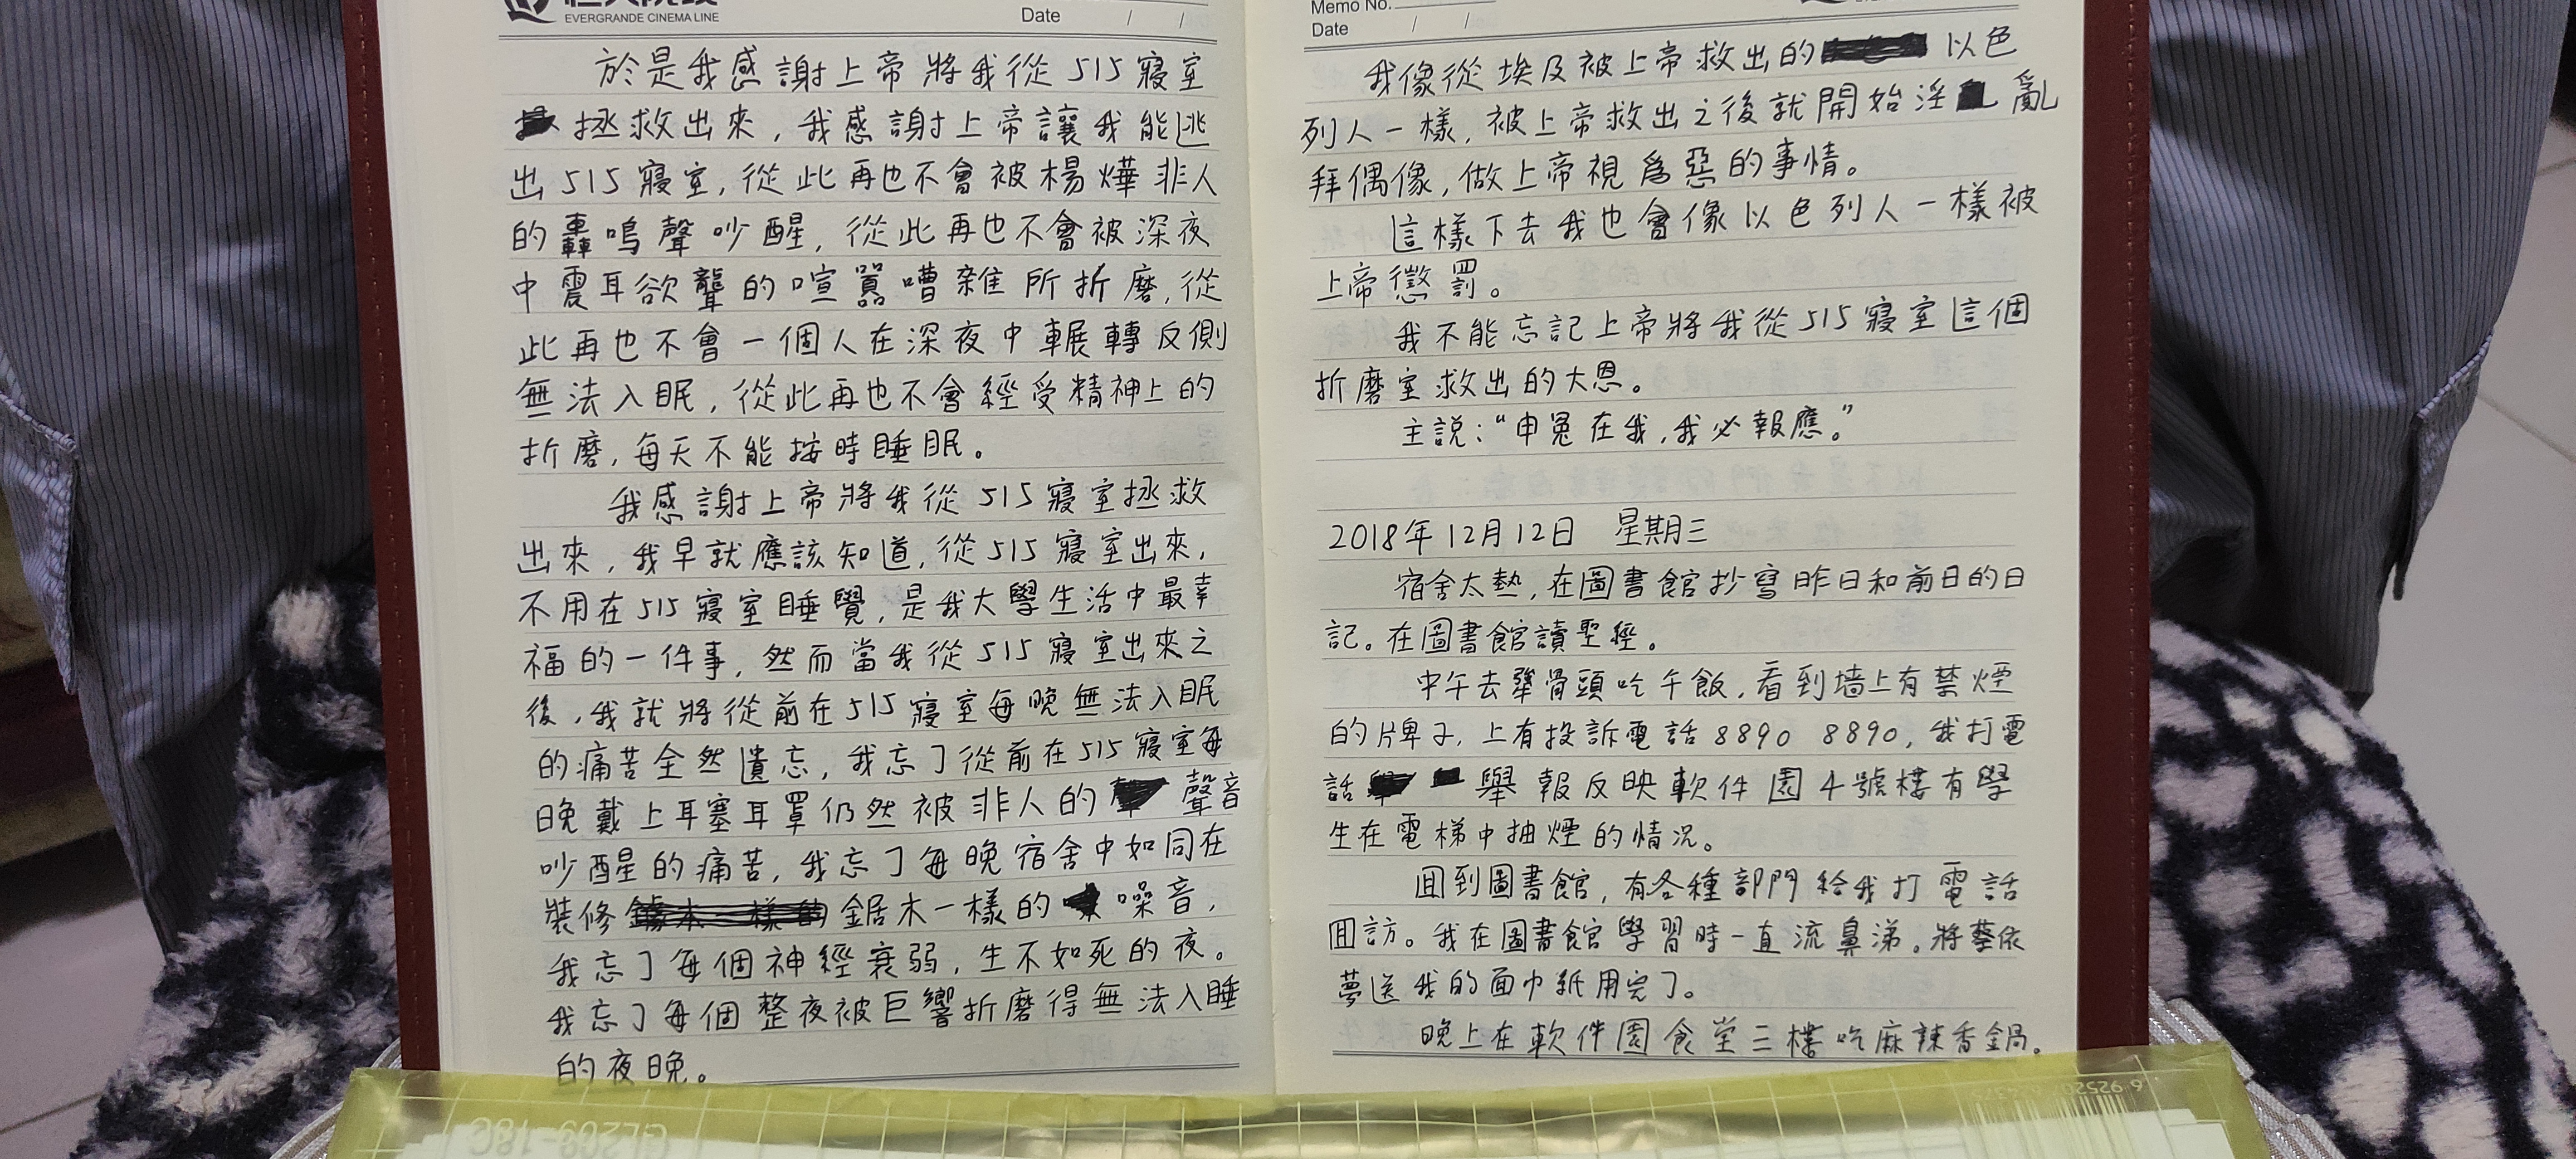 EVERGRANDE CINEMA LINE
Date / /
於是我感謝上帝將我從515寢室
拯救出來，我感謝上帝讓我能逃
出515寢室，從此再也不會被楊燁非人
的轟鳴聲吵醒，從此再也不會被深夜
中震耳欲聾的喧囂嘈雜所折磨，從
此再也不會一個人在深夜中輾轉反側
無法入眠，從此再也不會經受精神上的
折磨，每天不能按時睡眠。
我感謝上帝將我從515寢室拯救
出來，我早就應該知道，從515寢室出來，
不用在515寢室睡覺，是我大學生活中最幸
福的一件事，然而當我從515寢室出來之
後，我就將從前在515寢室每晚無法入眠
的痛苦全然遺忘，我忘了從前在515寢室每
晚戴上耳塞耳罩仍然被非人的聲音
吵醒的痛苦，我忘了每晚宿舍中如同在
裝修鋸木一樣的噪音，
我忘了每個神經衰弱，生不如死的夜。
我忘了每個整夜被巨響折磨得無法入睡
的夜晚。
Memo No.
Date / /
我像從埃及被上帝救出的以色
列人一樣，被上帝救出之後就開始淫亂
拜偶像，做上帝視為惡的事情。
這樣下去我也會像以色列人一樣被
上帝懲罰。
我不能忘記上帝將我從515寢室這個
折磨室救出的大恩。
主說：“申冤在我，我必報應。”
2018年12月12日 星期三
宿舍太熱，在圖書館抄寫昨日和前日的日
記。在圖書館讀聖經。
中午去犟骨頭吃午飯，看到墙上有禁煙
的牌子，上有投訴電話8890 8890，我打電
話舉報反映軟件園4號樓有學
生在電梯中抽煙的情况。
回到圖書館，有各種部門給我打電話
回訪。我在圖書館學習時一直流鼻涕。將蔡依
夢送我的面巾紙用完了。
晚上在軟件園食堂三樓吃麻辣香鍋。
GL209-18C